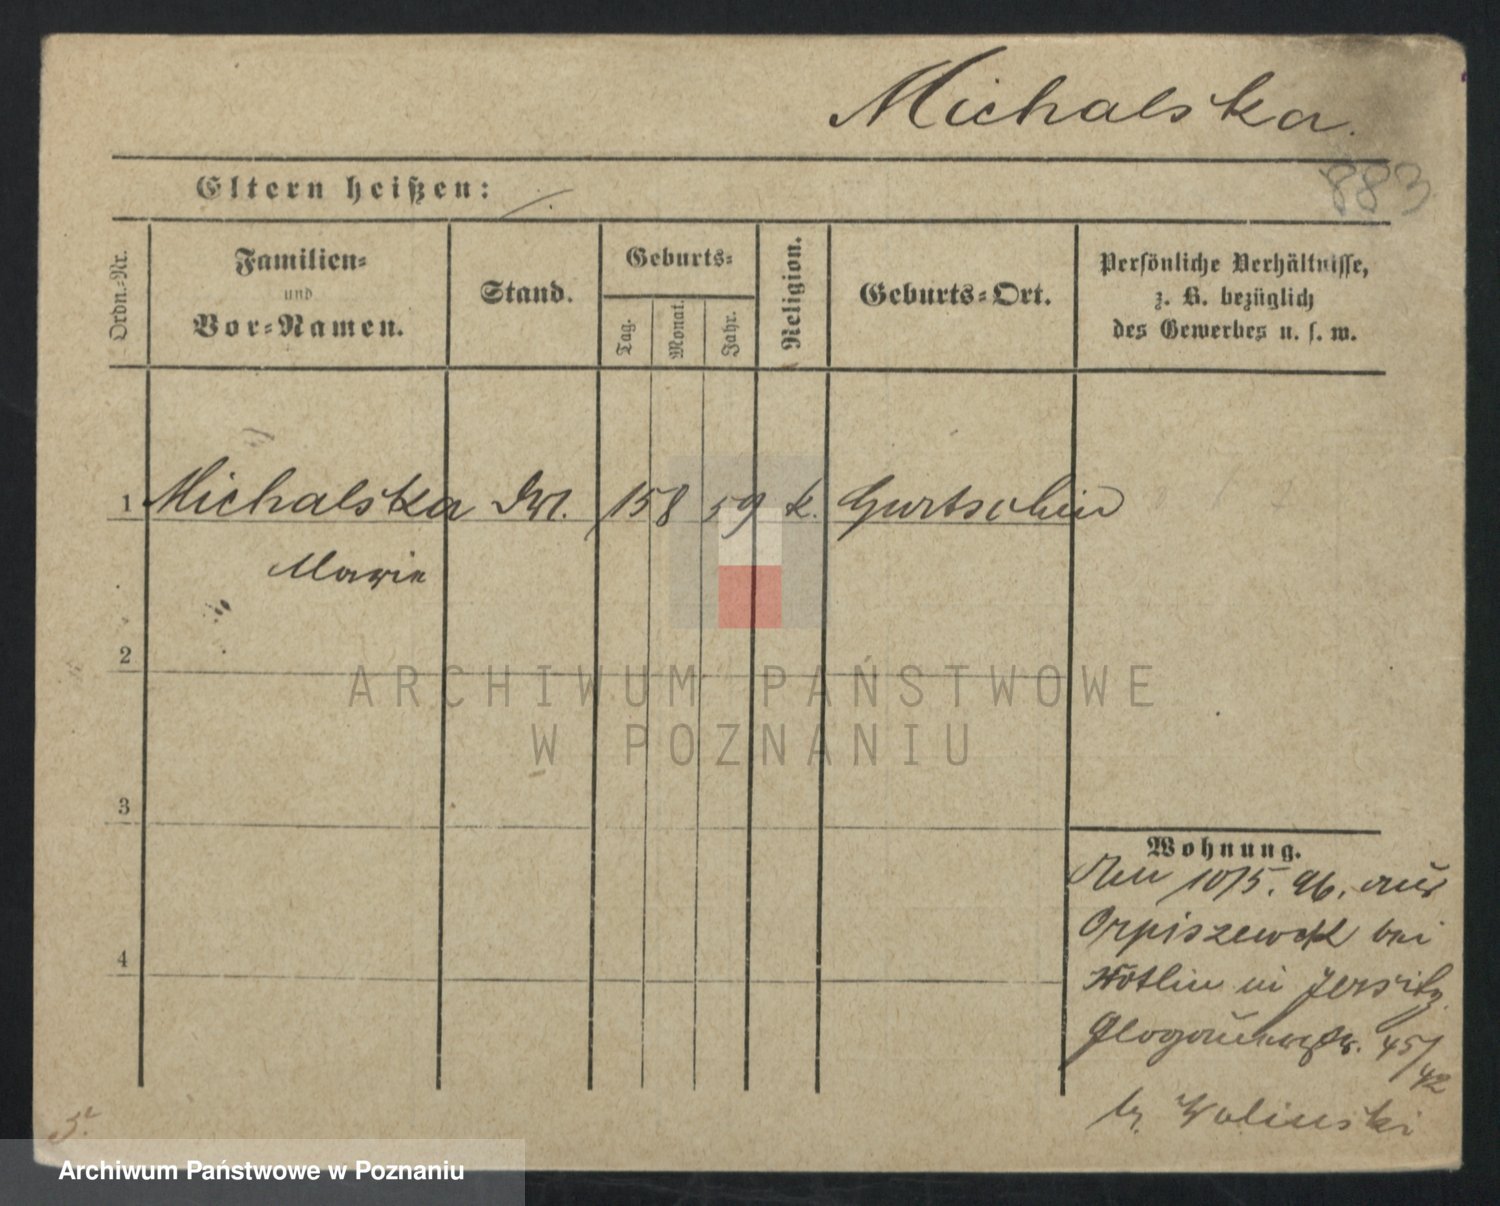 Michalska.
883
Eltern heißen:
Ordn.-Nr.
Familien-
und
Vor-Namen.
Stand.
Geburts-
Tag.
Monat.
Jahr.
Religion.
Geburts-Ort.
Persönliche Verhältnisse,
z. B. bezüglich
des Gewerbes u. s. w.
1 Michalska 15 8 59 k. Gurtschin
Marie
2
ARCHIWUM PAŃSTWOWE
W POZNANIU
3
Wohnung.
10/5. 96. aus
bei
in Jersitz
4
Glogauerstr. 45/
42
b. Wolinski
Archiwum Państwowe w Poznaniu